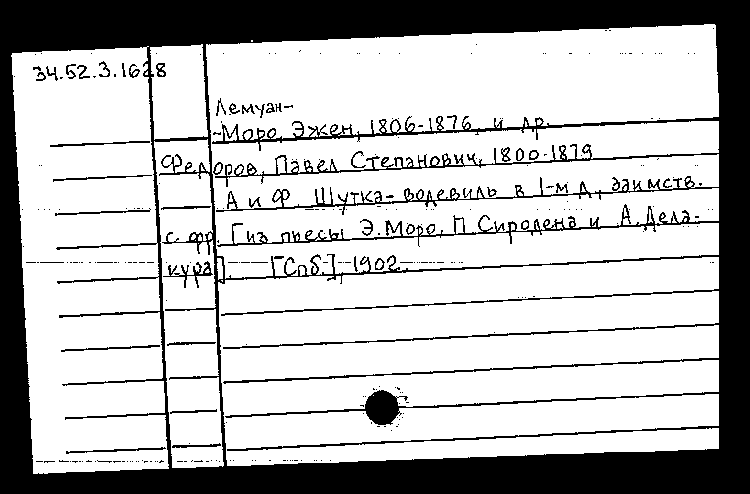 34.52.3.1628
Лемуан-
-Моро, Эжен, 1806-1876, и др.
Федоров, Павел Степанович, 1800-1879
А и Ф. Шутка-водевиль в 1-м д., заимств.
с фр. [из пьесы Э. Моро, П. Сиродена и А. Дела-
кура]. [Спб.], 1902.